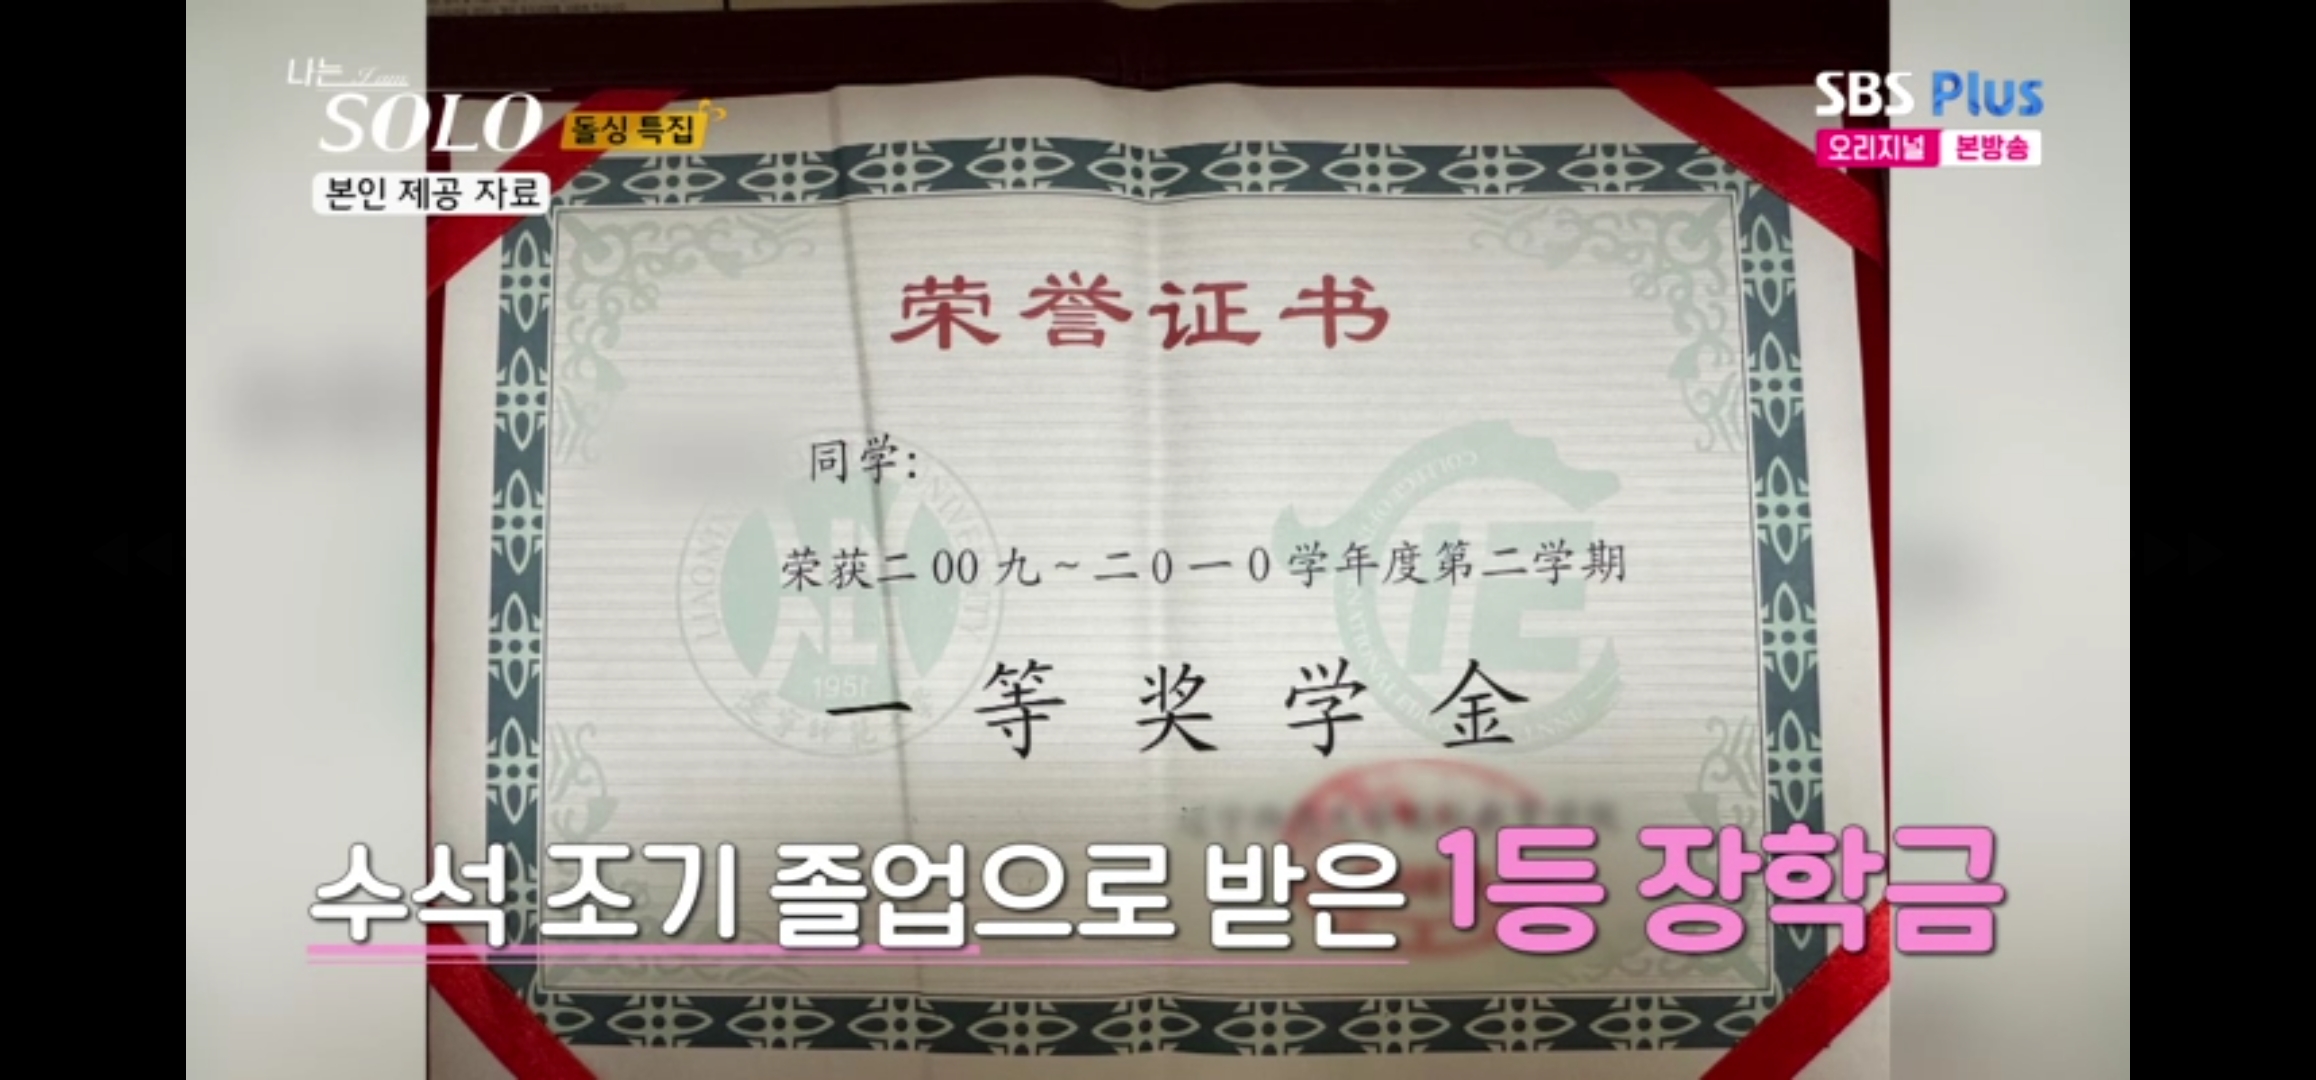 나는 I am
SOLO 돌싱 특집
본인 제공 자료
SBS Plus
오리지널 본방송
荣誉证书
同学:
荣获二00九~二0一0学年度第二学期
一等奖学金
1951
수석 조기 졸업으로 받은 1등 장학금